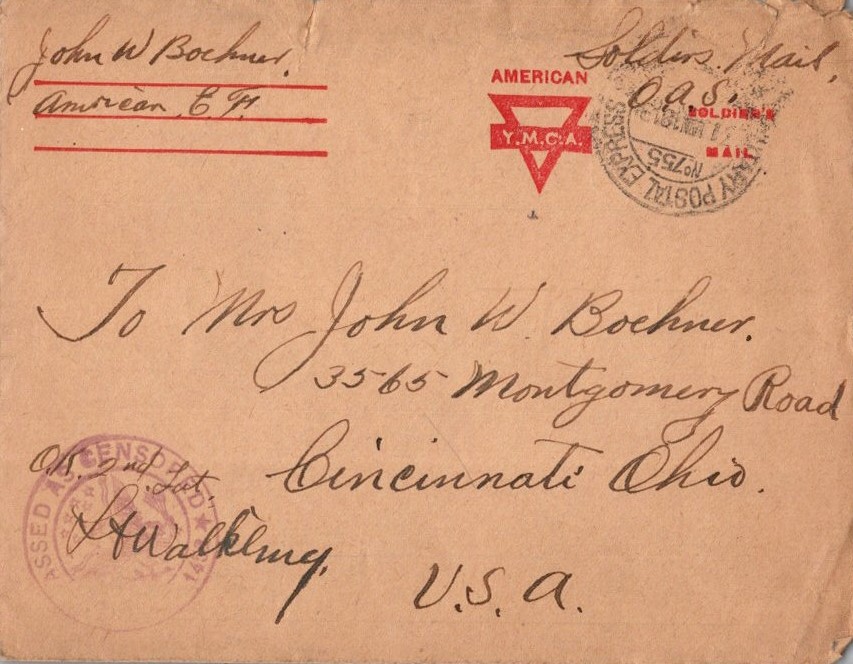 John W Boehner.
American E. F.
AMERICAN
Y.M.C.A.
Soldiers Mail,
O. A. S.
SOLDIER'S
MAIL
MILITARY POSTAL EXPRESS
No 755
To Mrs John W. Boehner.
3565 Montgomery Road
Cincinnati Ohio.
U. S. A.
O.K. 2nd Lut.
PASSED AS CENSORED